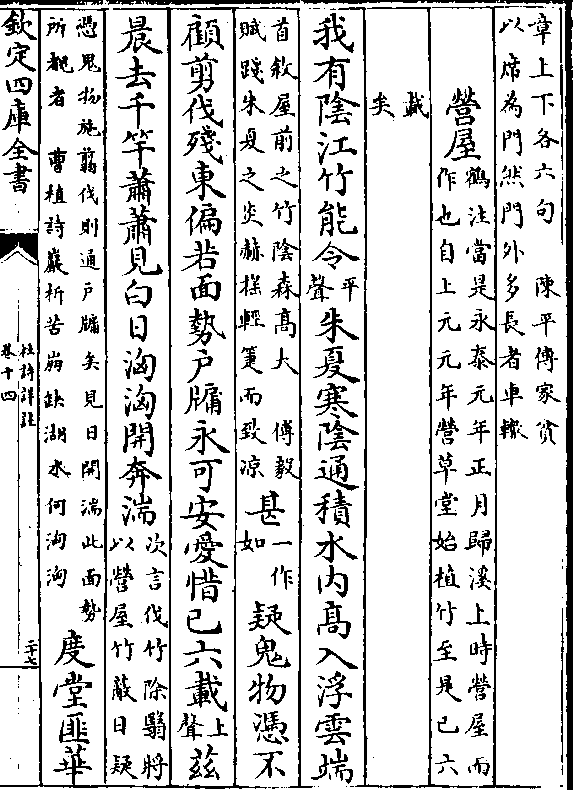 章上下各六句　陳平傳家貧
以席為門然門外多長者車轍
營屋鶴注當是永泰元年正月歸溪上時營屋而
作也自上元元年營草堂始植竹至是已六
載
矣
我有陰江竹能令平聲朱夏寒陰通積水内髙入浮雲端
首敘屋前之竹陰森高大　傅毅
賦踐朱夏之炎赫揺輕箑而致凉
甚一作如疑鬼物憑不
顧剪伐殘東偏若面勢户牖永可安愛惜已六載上聲兹
晨去千竿蕭蕭見白日洶洶開奔湍次言伐竹除翳將
以營屋竹蔽日疑
憑鬼物施翦伐則通户牖矣見日開湍此面勢
所觀者　曹植詩巖析苦崩缺湖水何洶洶
度堂匪華
欽定四庫全書
杜詩詳註
卷十四
二十七